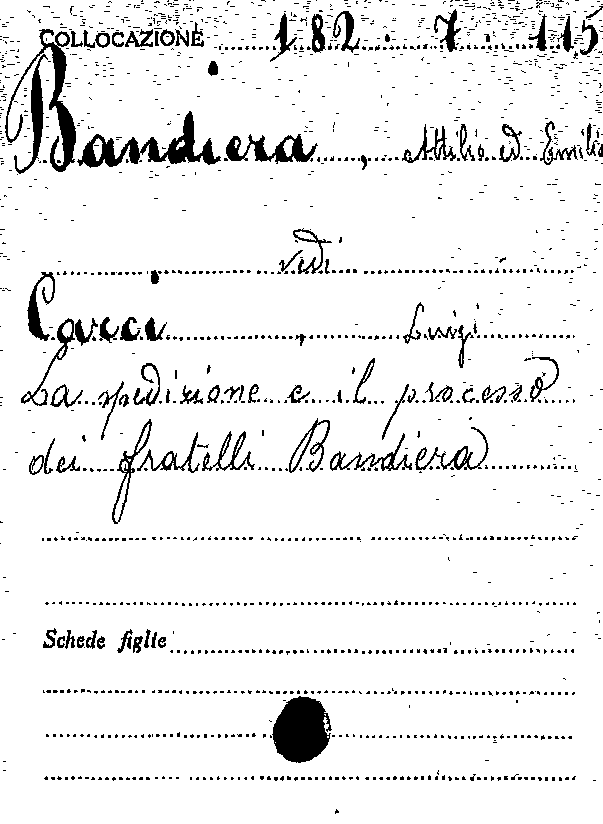 COLLOCAZIONE 182. 7. 115
Bandiera, Attilio ed Emilio
vedi
Carci, Luigi
La spedizione e il processo
dei fratelli Bandiera
Schede figlie